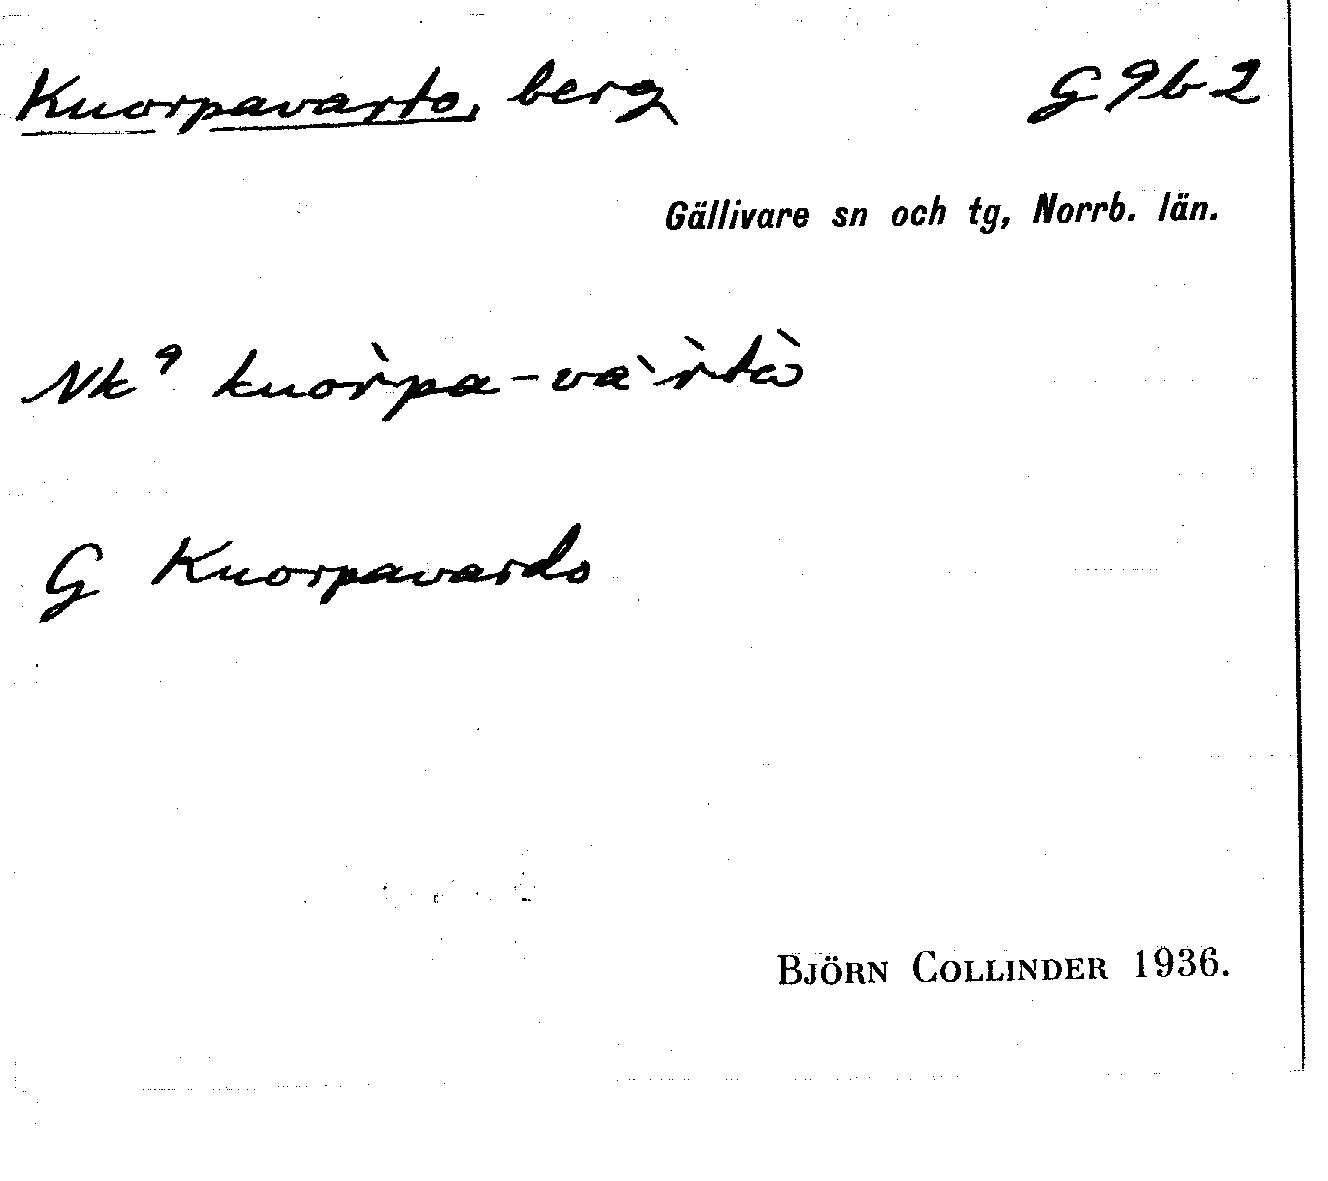 Knorpavarto, berg G 9 b 2
Gällivare sn och tg, Norrb. län.
Nk⁹ kuor̀pa-va`r̀tà
G Knorpavardo
BJÖRN COLLINDER 1936.